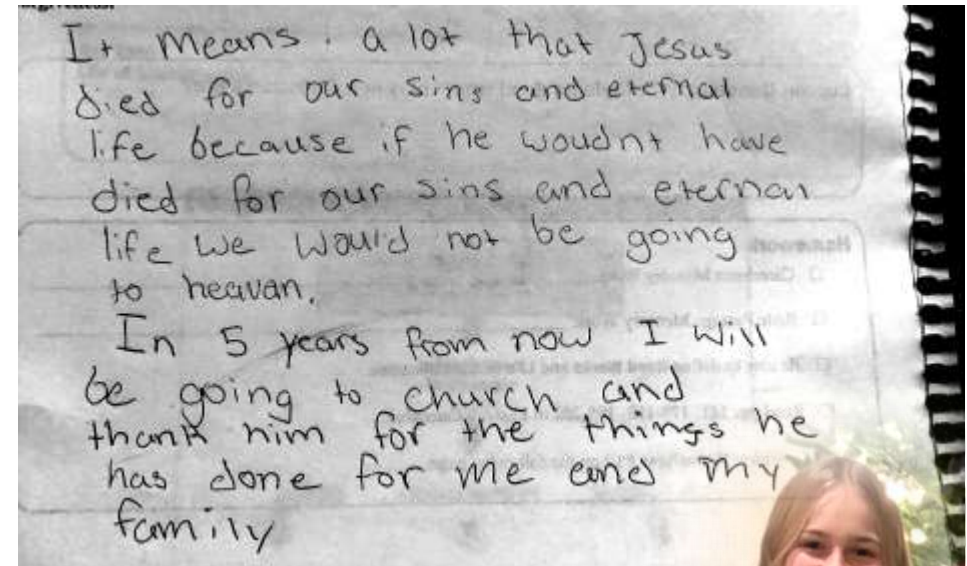 It means a lot that Jesus
died for our sins and eternal
life because if he woudnt have
died for our sins and eternal
life we would not be going
to heavan.
In 5 years from now I will
be going to church and
thank him for the things he
has done for me and my
family